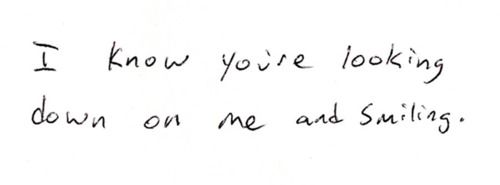 I know you're looking
down on me and smiling.